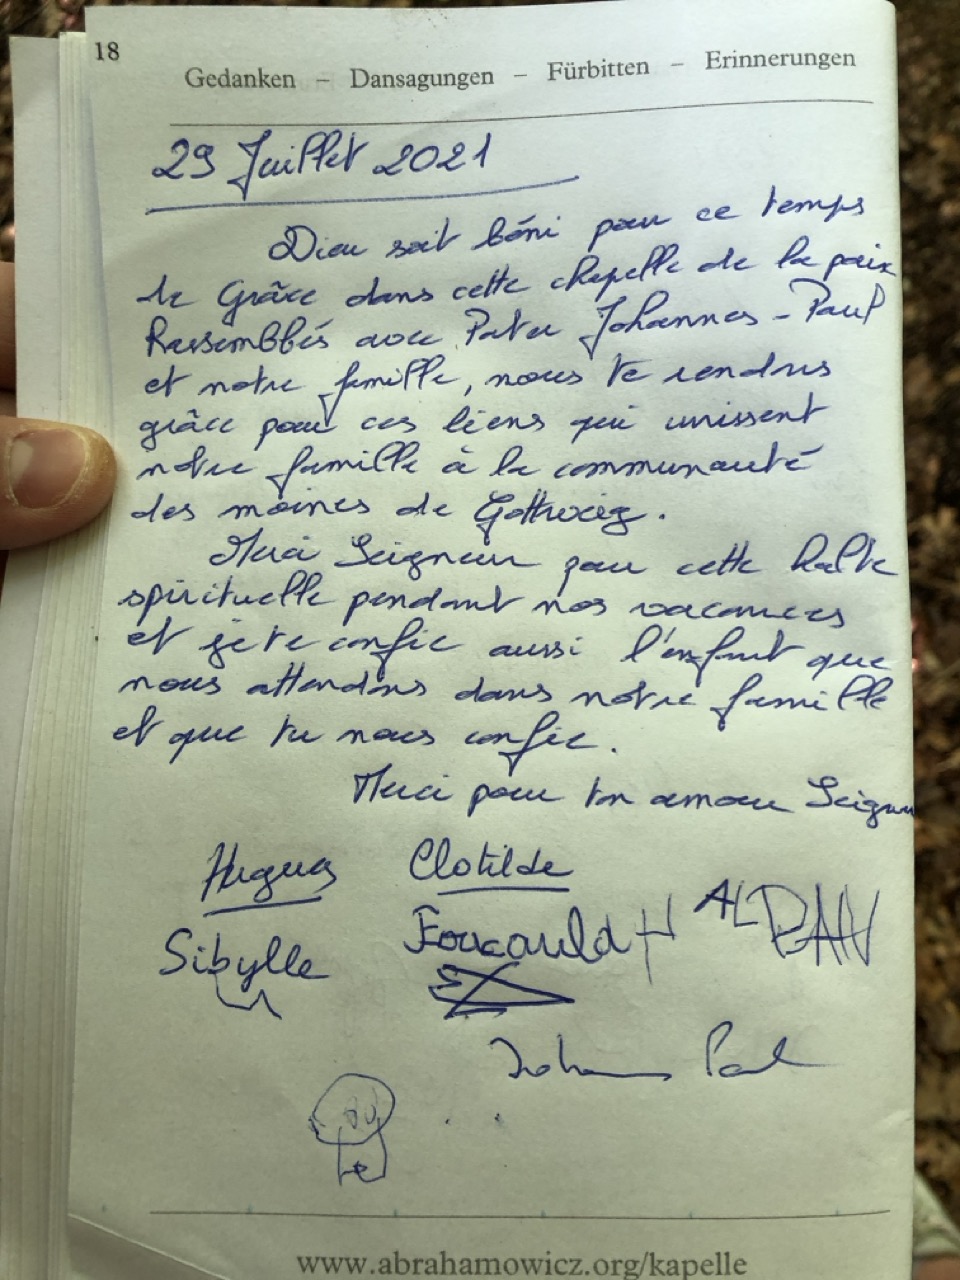 18
Gedanken – Dansagungen – Fürbitten – Erinnerungen
29 Juillet 2021
Dieu soit béni pour ce temps
de Grâce dans cette chapelle de la paix
Rassemblés avec Pater Johannes-Paul
et notre famille, nous te rendons
grâce pour ces liens qui unissent
notre famille à la communauté
des moines de Gottweig.
Merci Seigneur pour cette halte
spirituelle pendant nos vacances
et je te confie aussi l'enfant que
nous attendons dans notre famille
et que tu nous confie.
Merci pour ton amour Seigneur
Hugues Clotilde
Sibylle Foucauld
Johannes Paul
www.abrahamowicz.org/kapelle